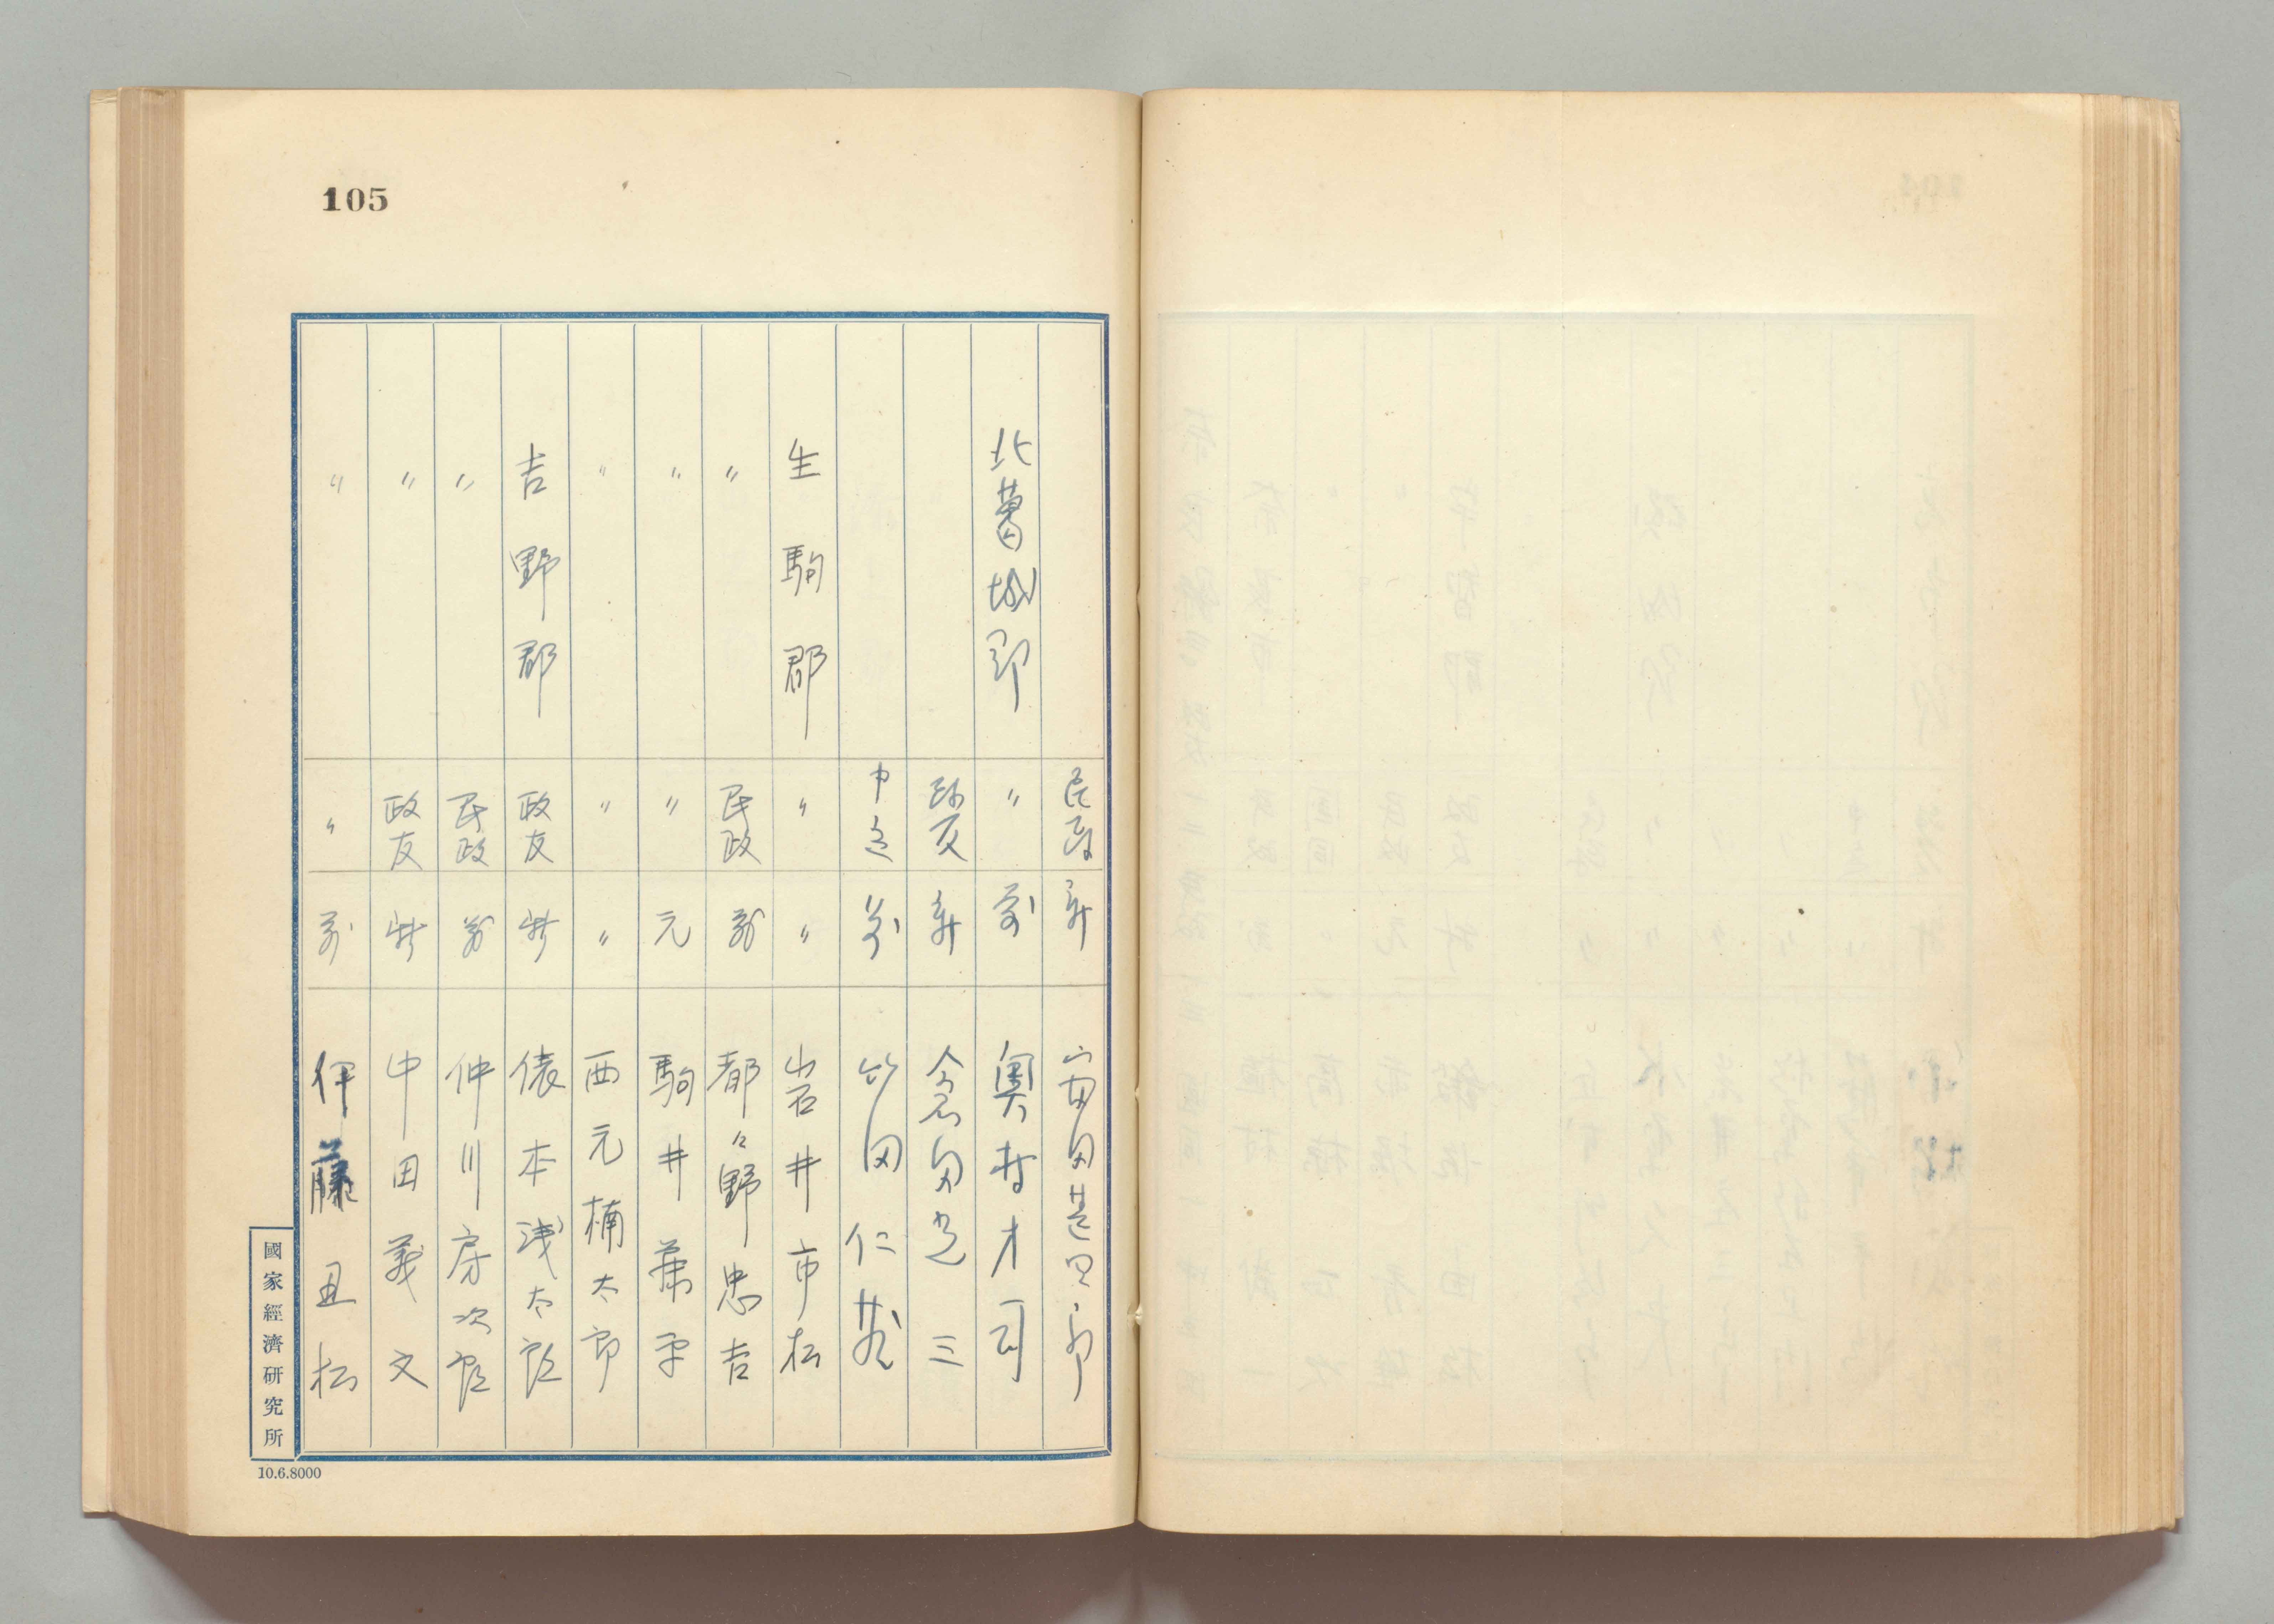 105
民政 新 富田甚四郎
北葛城郡 〃 前 奥村才司
政友 新 倉田光三
中立 前 竹田仁蔵
生駒郡 〃 〃 岩井市松
〃 民政 前 都々野忠吉
〃 〃 元 駒井兼平
〃 〃 〃 西元楠太郎
吉野郡 政友 新 俵本浅太郎
〃 民政 前 仲川房次郎
〃 政友 新 中田義文
〃 〃 前 伊藤丑松
國家經濟研究所
10.6.8000